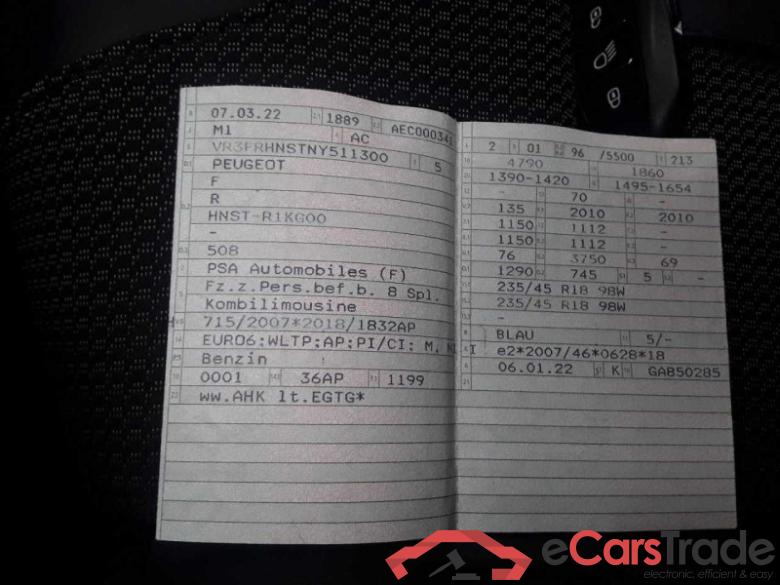 07.03.22 1889 AEC000341
M1 AC
VR3FRHNSTNY511300 5
PEUGEOT
F
R
HNST-R1KG00
-
508
PSA Automobiles (F)
Fz.z.Pers.bef.b. 8 Spl.
Kombilimousine
715/2007*2018/1832AP
EURO6;WLTP;AP;PI/CI: M, N1 I
Benzin
0001 36AP 1199
ww.AHK lt.EGTG*
2 01 96 /5500 213
4790 1860
1390-1420 1495-1654
- 70 -
135 2010 2010
1150 1112 -
1150 1112 -
76 3750 69
1290 745 5 -
235/45 R18 98W
235/45 R18 98W
-
BLAU 5/-
e2*2007/46*0628*18
06.01.22 K GAB50285
eCarsTrade
electronic, efficient & easy